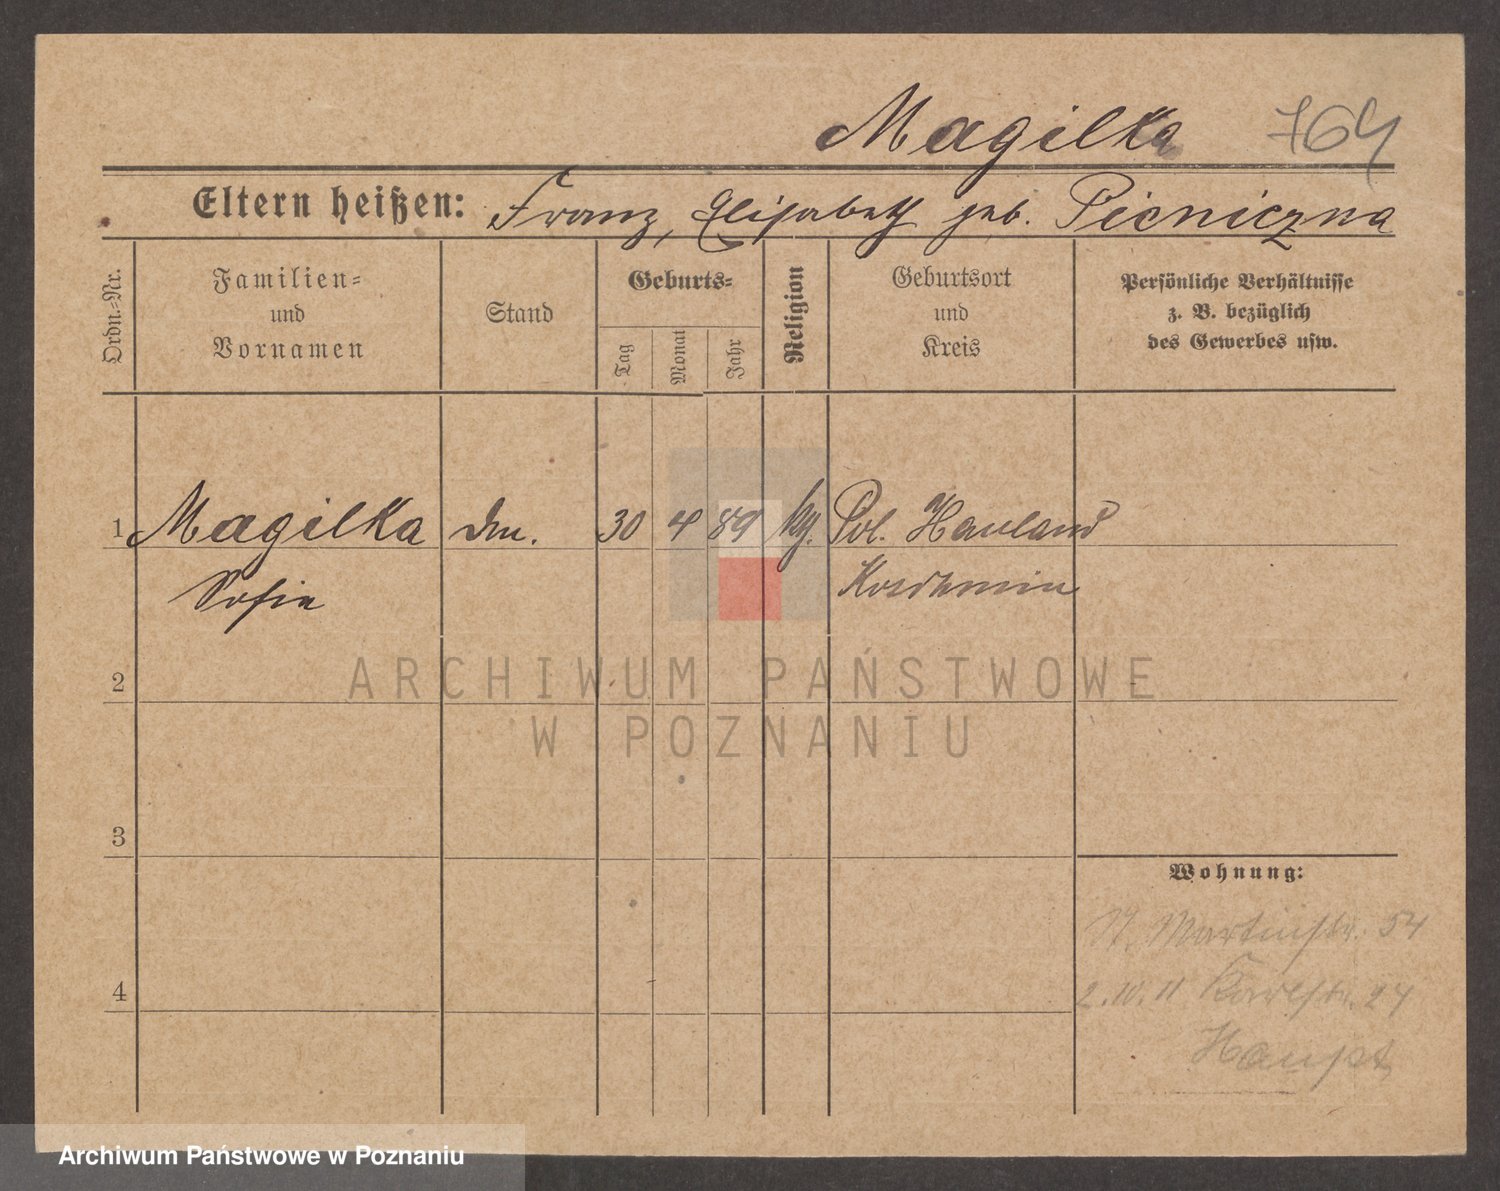 Magilka 764
Eltern heißen: Franz, Elisabeth geb. Pieniczna
Ordn.=Nr.
Familien=
und
Vornamen
Stand
Geburts=
Tag
Monat
Jahr
Religion
Geburtsort
und
Kreis
Persönliche Verhältnisse
z. B. bezüglich
des Gewerbes usw.
1 Magilka 30 4 89 Pol. Hauland
Sofie Koschmin
2
3
4
Wohnung:
St. Martinstr. 54
2.10.11 24
Haupt
ARCHIWUM PAŃSTWOWE
W POZNANIU
Archiwum Państwowe w Poznaniu